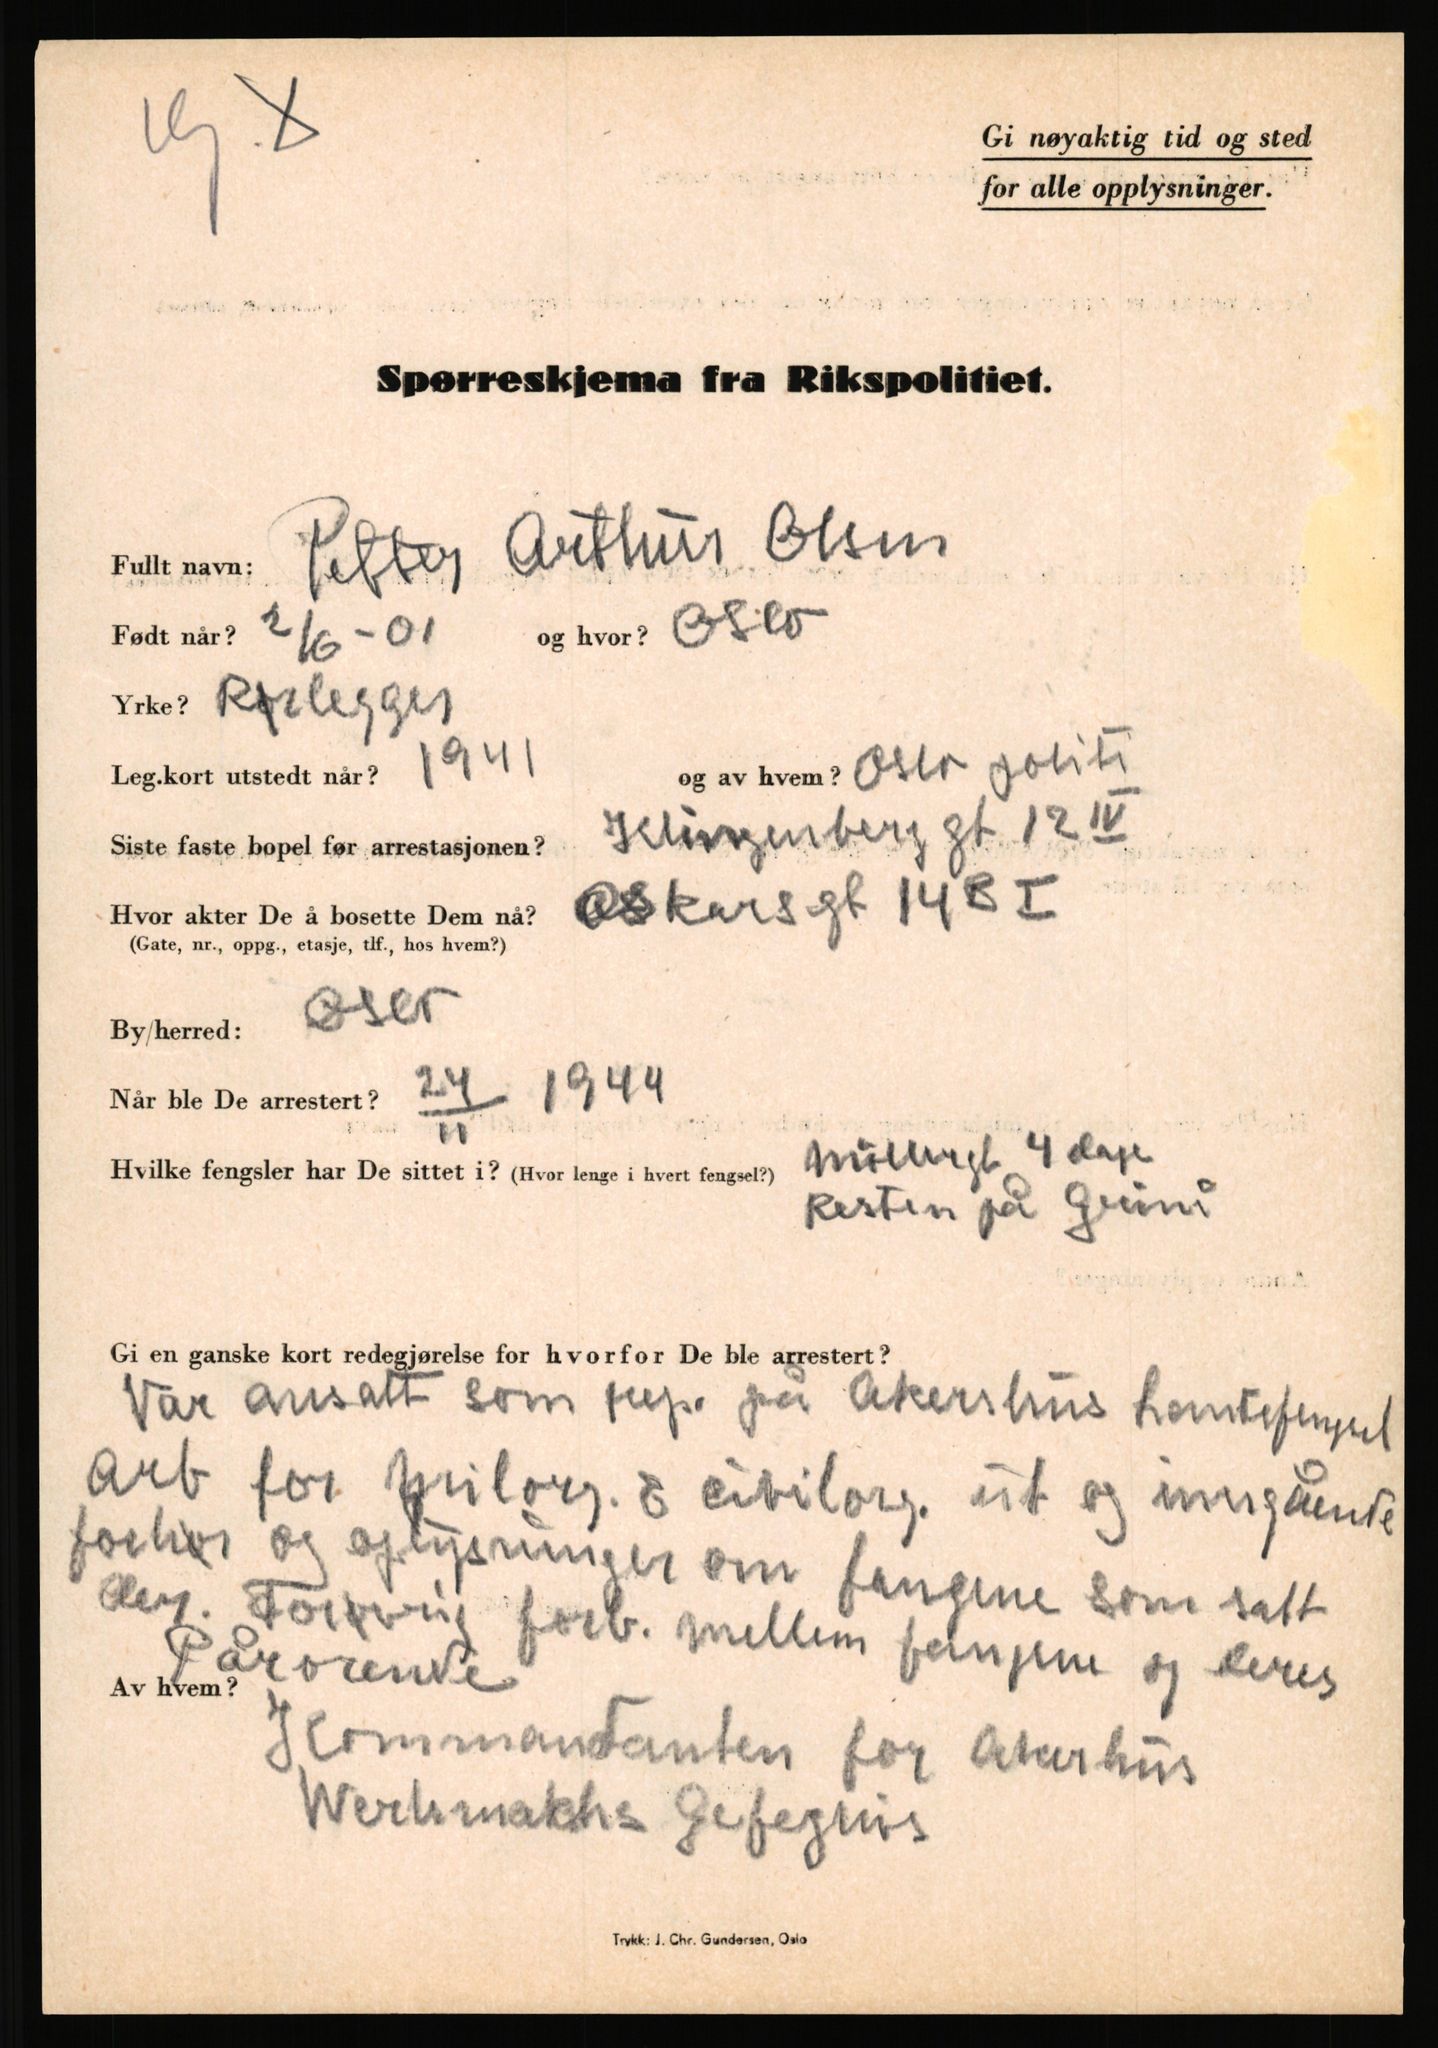 Gi nøyaktig tid og sted
for alle opplysninger.
Spørreskjema fra Rikspolitiet.
Fullt navn: Petter Arthur Olsen
Født når? 2/6-01 og hvor? Oslo
Yrke? Rørlegger
Leg.kort utstedt når? 1941 og av hvem? Oslo politi
Siste faste bopel før arrestasjonen? Klingenberg gt 12 IV
Hvor akter De å bosette Dem nå? Oskarsgt 14 B I
(Gate, nr., oppg., etasje, tlf., hos hvem?)
By/herred: Oslo
Når ble De arrestert? 24/11 1944
Hvilke fengsler har De sittet i? (Hvor lenge i hvert fengsel?) Møllergt 4 dage
Resten på Grini
Gi en ganske kort redegjørelse for hvorfor De ble arrestert?
Var ansatt som rep. på Akershus hærtefengsel
Arb for Milorg. & civilorg. ut og inngående
forhør og oplysninger om fangene som satt
der. forb. mellem fangene og deres
Pårørende
Av hvem?
Kommandanten for Akerhus
Werhmakths Gefegnis
Trykk: J. Chr. Gundersen, Oslo